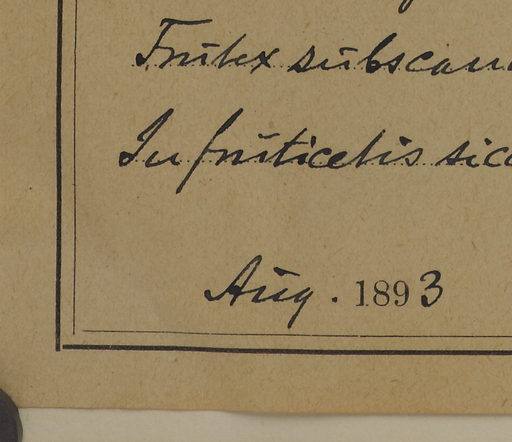 Frutex subscan
In fruticetis sicc
Aug. 1893